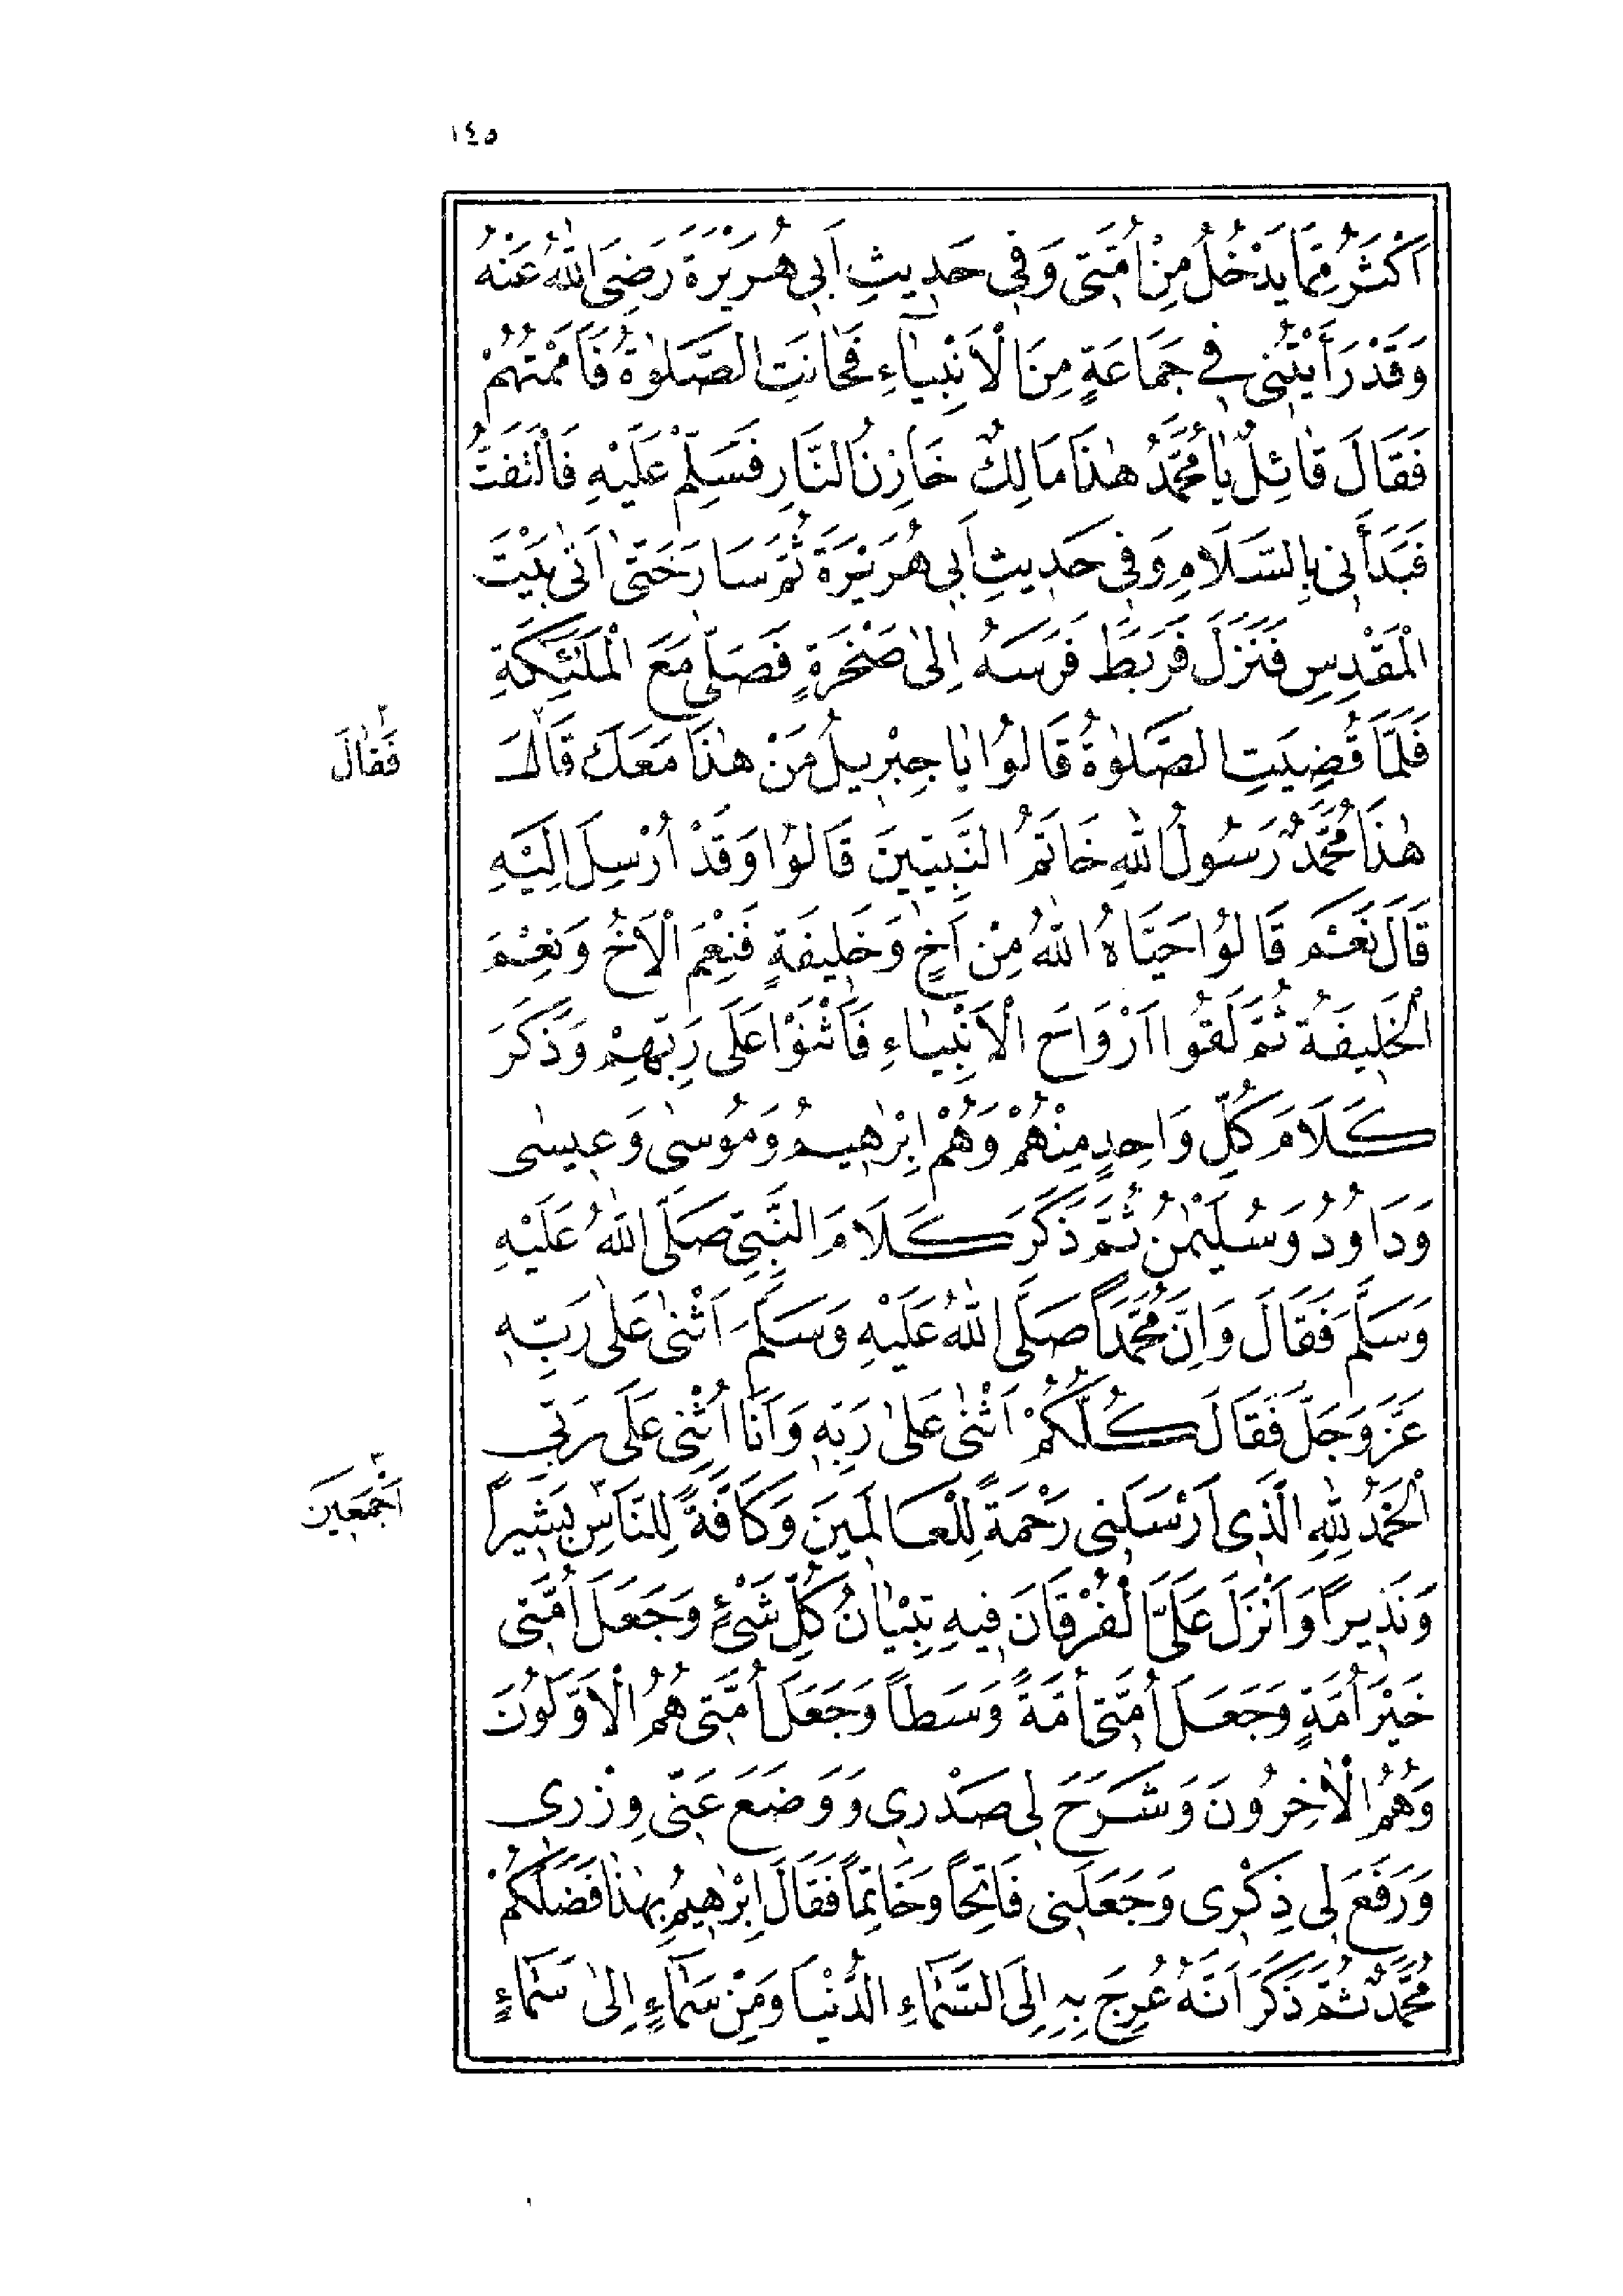 ١٤٥
اَكْثَرُ مِمَّا يَدْخُلُ مِنْ اُمَّتِى وَفِى حَدِيثِ اَبِى هُرَيْرَةَ رَضِىَ اللّٰهُ عَنْهُ
وَقَدْ رَأَيْتُنِى فِى جَمَاعَةٍ مِنَ الْاَنْبِيٰٓاءِ فَحَانَتِ الصَّلٰوةُ فَاَمَمْتُهُمْ
فَقَالَ قَائِلٌ يَا مُحَمَّدُ هٰذَا مَالِكٌ خَازِنُ النَّارِ فَسَلِّمْ عَلَيْهِ فَالْتَفَتُّ
فَبَدَأَنِى بِالسَّلَامِ وَفِى حَدِيثِ اَبِى هُرَيْرَةَ ثُمَّ سَارَ حَتّٰى اَتٰى بَيْتَ
الْمَقْدِسِ فَنَزَلَ فَرَبَطَ فَرَسَهُ اِلٰى صَخْرَةٍ فَصَلّٰى مَعَ الْمَلٰئِكَةِ
فَلَمَّا قُضِيَتِ الصَّلٰوةُ قَالُوا يَا جِبْرِيلُ مَنْ هٰذَا مَعَكَ قَالَ
فَقَالَ
هٰذَا مُحَمَّدٌ رَسُولُ اللّٰهِ خَاتَمُ النَّبِيّينَ قَالُوا وَقَدْ اُرْسِلَ اِلَيْهِ
قَالَ نَعَمْ قَالُوا حَيَّاهُ اللّٰهُ مِنْ اَخٍ وَخَلِيفَةٍ فَنِعْمَ الْاَخُ وَنِعْمَ
الْخَلِيفَةُ ثُمَّ لَقُوا اَرْوَاحَ الْاَنْبِيٰاءِ فَاَثْنَوْا عَلَى رَبِّهِمْ وَذَكَرَ
كَلَامَ كُلِّ وَاحِدٍ مِنْهُمْ وَهُمْ اِبْرٰهِيمُ وَمُوسٰى وَعِيسٰى
وَدَاوُدُ وَسُلَيْمٰنُ ثُمَّ ذَكَرَ كَلَامَ النَّبِىِّ صَلَّى اللّٰهُ عَلَيْهِ
وَسَلَّمَ فَقَالَ وَاِنَّ مُحَمَّدًا صَلَّى اللّٰهُ عَلَيْهِ وَسَلَّمَ اَثْنٰى عَلٰى رَبِّهِ
عَزَّ وَجَلَّ فَقَالَ كُلُّكُمْ اَثْنٰى عَلٰى رَبِّهِ وَاَنَا اُثْنِى عَلَى رَبِّى
اَلْحَمْدُ لِلّٰهِ الَّذِى اَرْسَلَنِى رَحْمَةً لِلْعَالَمِينَ وَكَافَّةً لِلنَّاسِ بَشِيرًا
اَجْمَعِينَ
وَنَذِيرًا وَاَنْزَلَ عَلَىَّ الْفُرْقَانَ فِيهِ تِبْيٰانُ كُلِّ شَىْءٍ وَجَعَلَ اُمَّتِى
خَيْرَ اُمَّةٍ وَجَعَلَ اُمَّتِى اُمَّةً وَسَطًا وَجَعَلَ اُمَّتِى هُمُ الْاَوَّلُونَ
وَهُمُ الْاٰخِرُونَ وَشَرَحَ لِى صَدْرِى وَوَضَعَ عَنِّى وِزْرِى
وَرَفَعَ لِى ذِكْرِى وَجَعَلَنِى فَاتِحًا وَخَاتِمًا فَقَالَ اِبْرٰهِيمُ بِهٰذَا فَضَلَكُمْ
مُحَمَّدٌ ثُمَّ ذَكَرَ اَنَّهُ عُرِجَ بِهِ اِلَى السَّمَاءِ الدُّنْيَا وَمِنْ سَمَاءٍ اِلٰى سَمَاءٍ